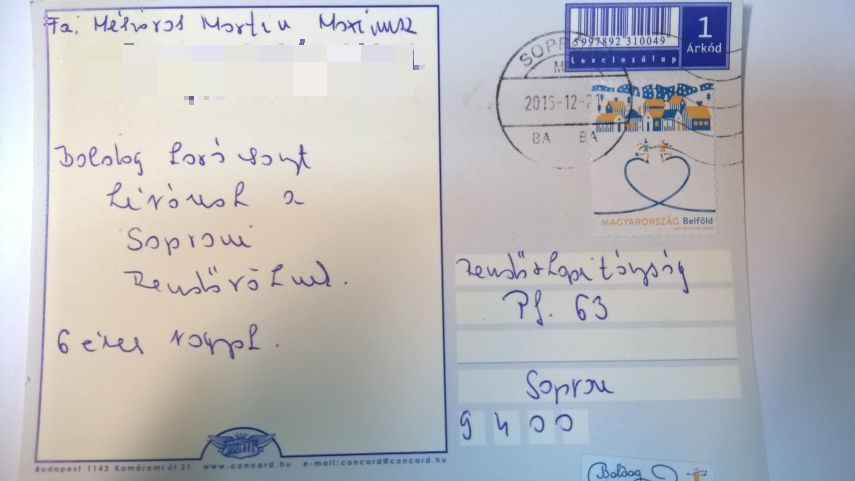 Fa: Mészáros Martin Maximusz
Boldog Karácsonyt
kívánok a
Soproni
Rendőröknek.
6 éves vagyok.
Budapest 1142 Komáromi út 21. www.concard.hu e-mail:concard@concard.hu
5997892 310049
Levelezőlap
1
Árkód
SOPR
M
2015-12-21
BA BA
MAGYARORSZÁG Belföld
Rendőrkapitányság
Pf. 63
Sopron
9400
Boldog